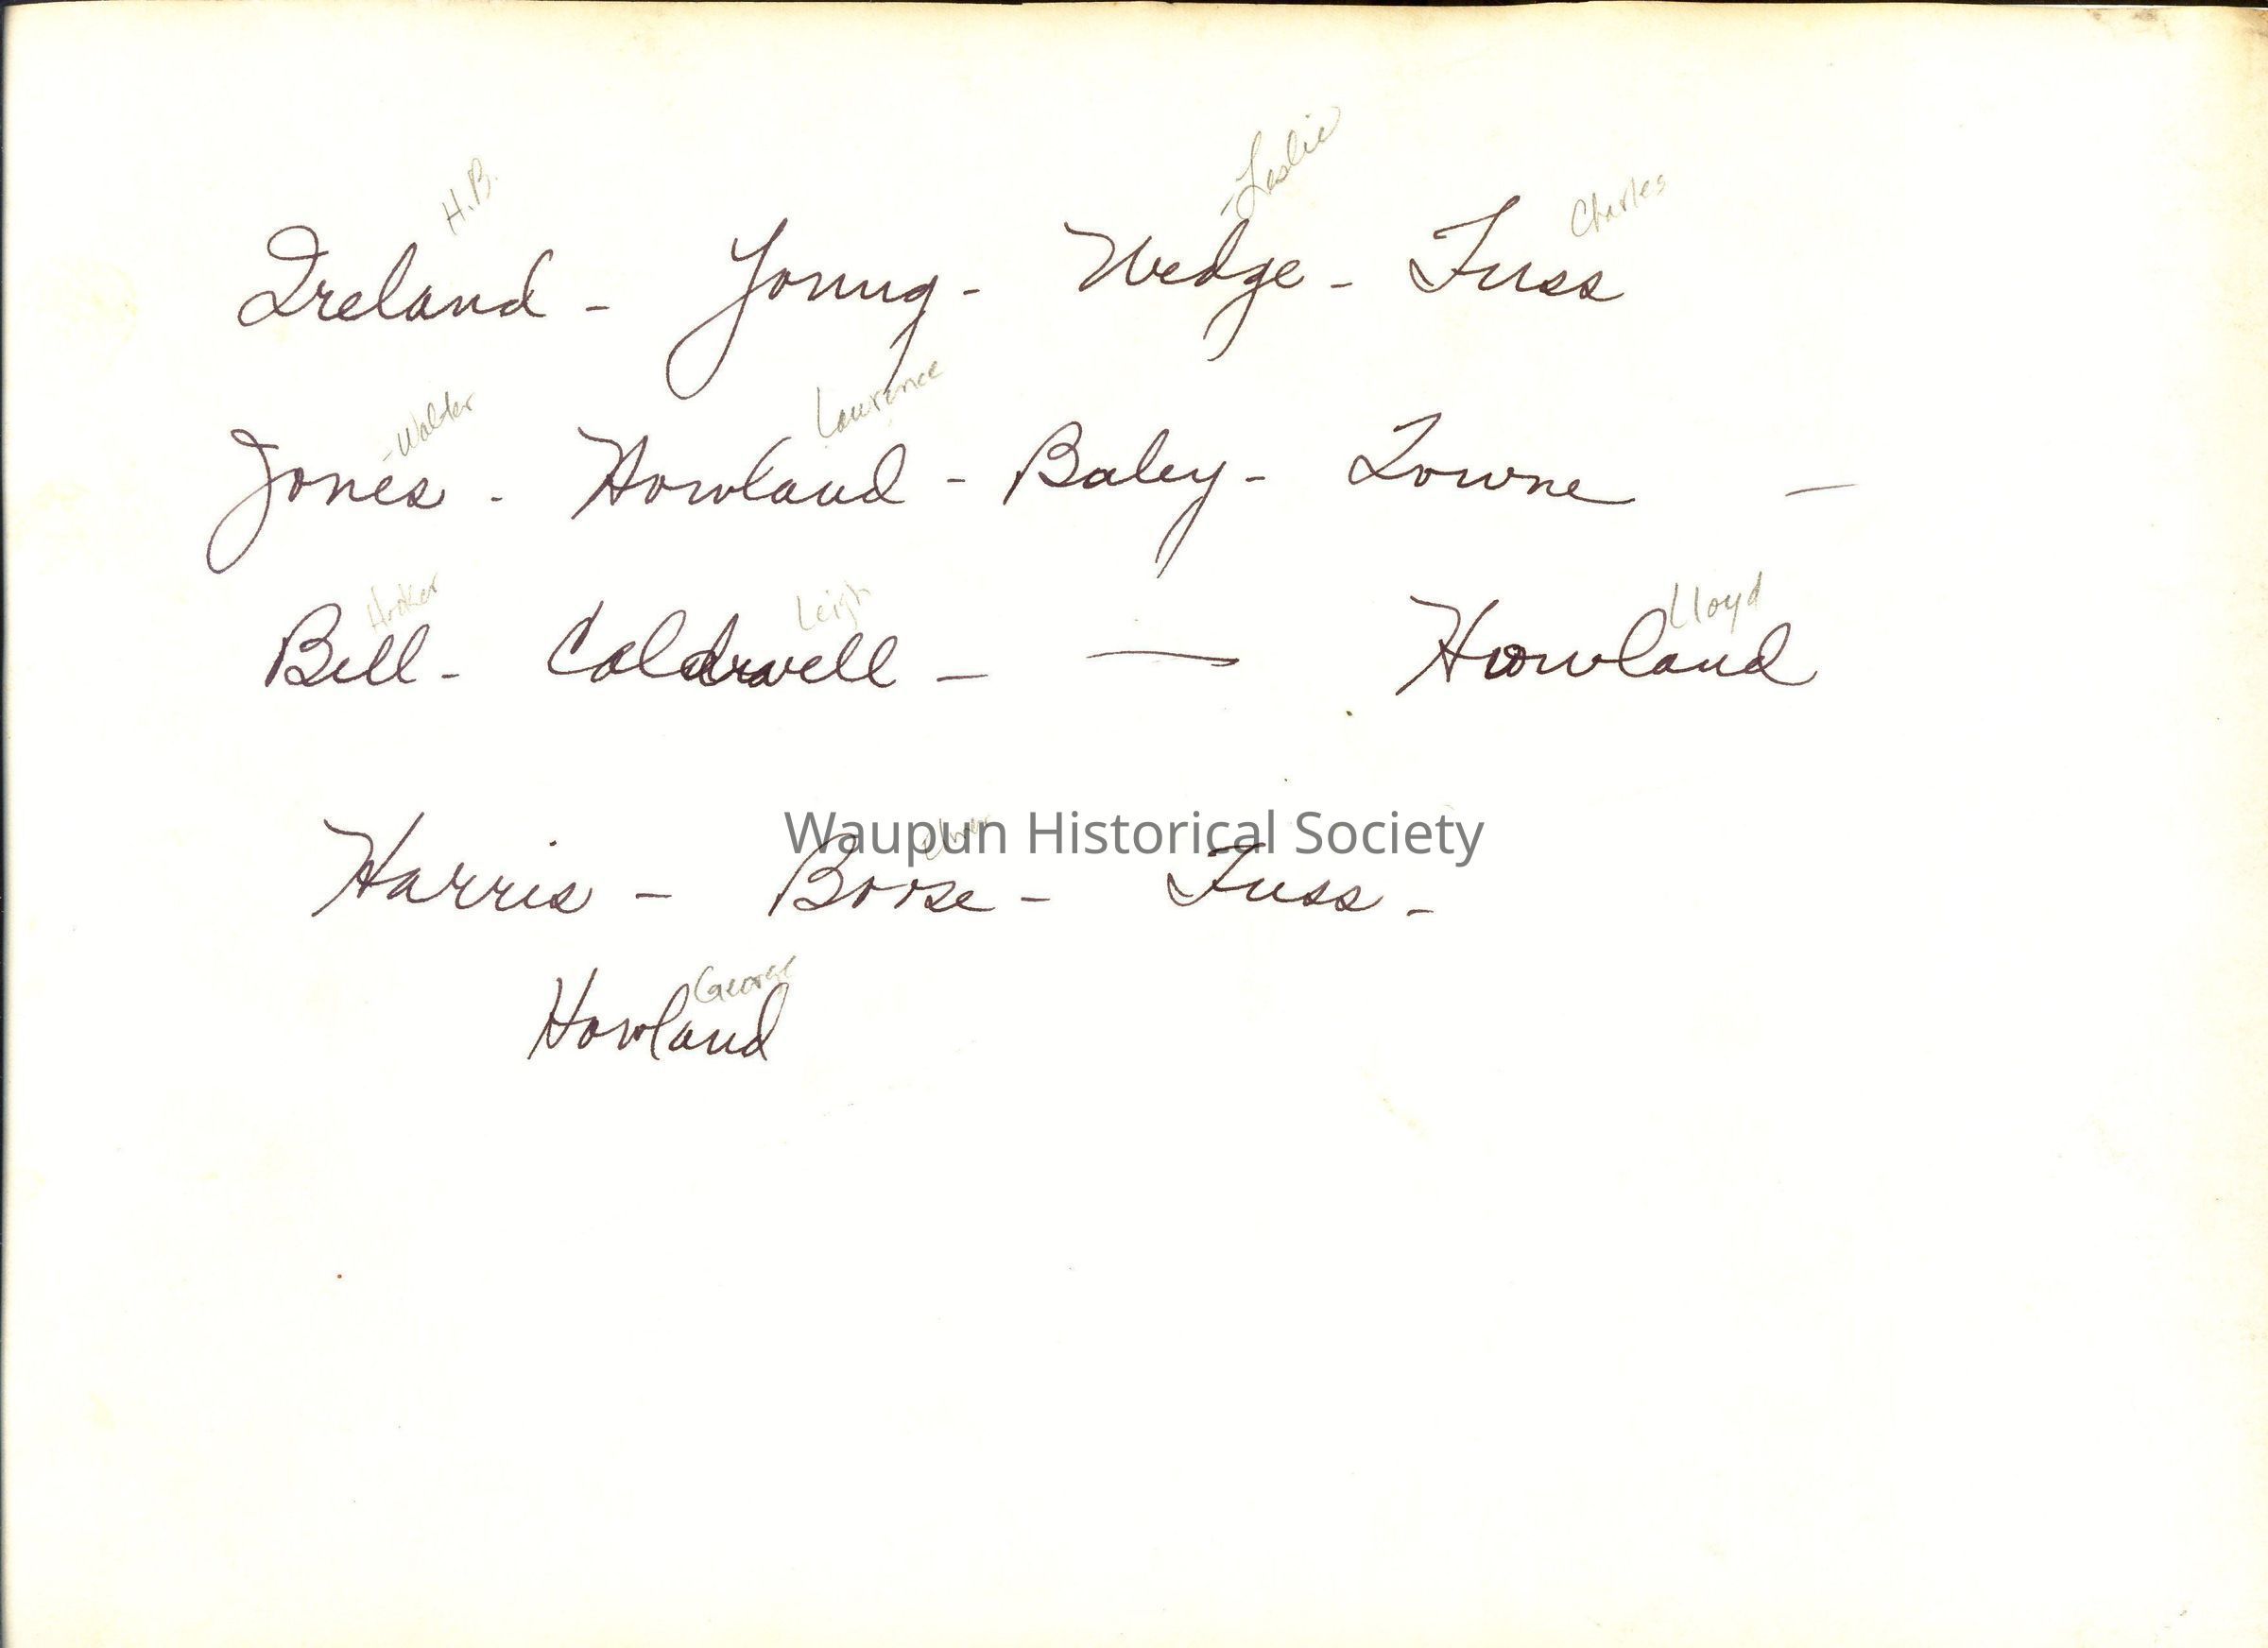 H.B. -Leslie Charles
Ireland - Young - Wedge - Fuss
-Walter Lawrence
Jones - Howland - Baley - Towne —
Hooker Leigh Lloyd
Bell - Caldwell — — Howland
Waupun Historical Society
Elmer
Harris - Boose - Fuss -
George
Howland